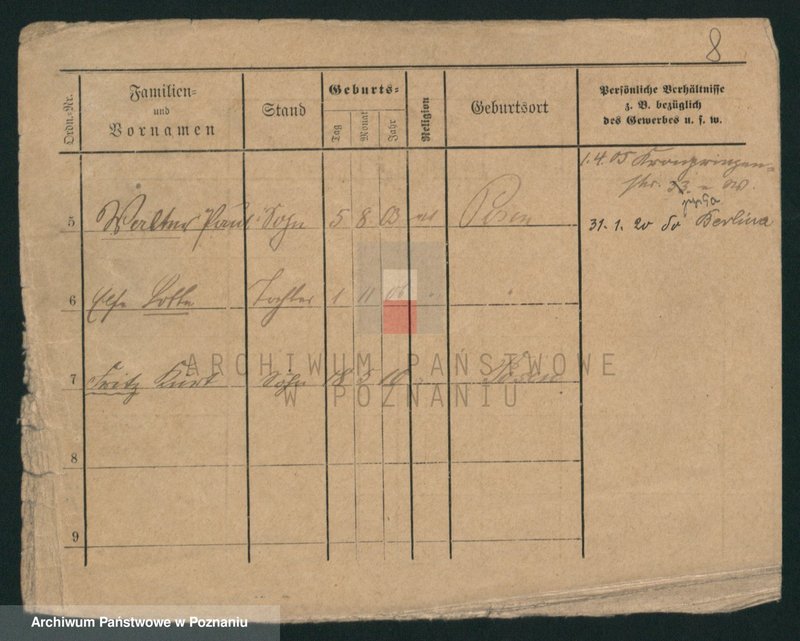 8
Ordn.-Nr.
Familien-
und
Vornamen
Stand
Geburts-
Tag
Monat
Jahr
Religion
Geburtsort
Persönliche Verhältnisse
z. B. bezüglich
des Gewerbes u. s. w.
1. 4. 05 Kronprinzen-
str.
5 Walter Paul Sohn 5 8 03 Posen
31. 1. 20 Berlina
6 Else Lotte Tochter 1 11 06
7 Fritz Kurt Sohn 18 Posen
8
9
ARCHIWUM PAŃSTWOWE
W POZNANIU
Archiwum Państwowe w Poznaniu